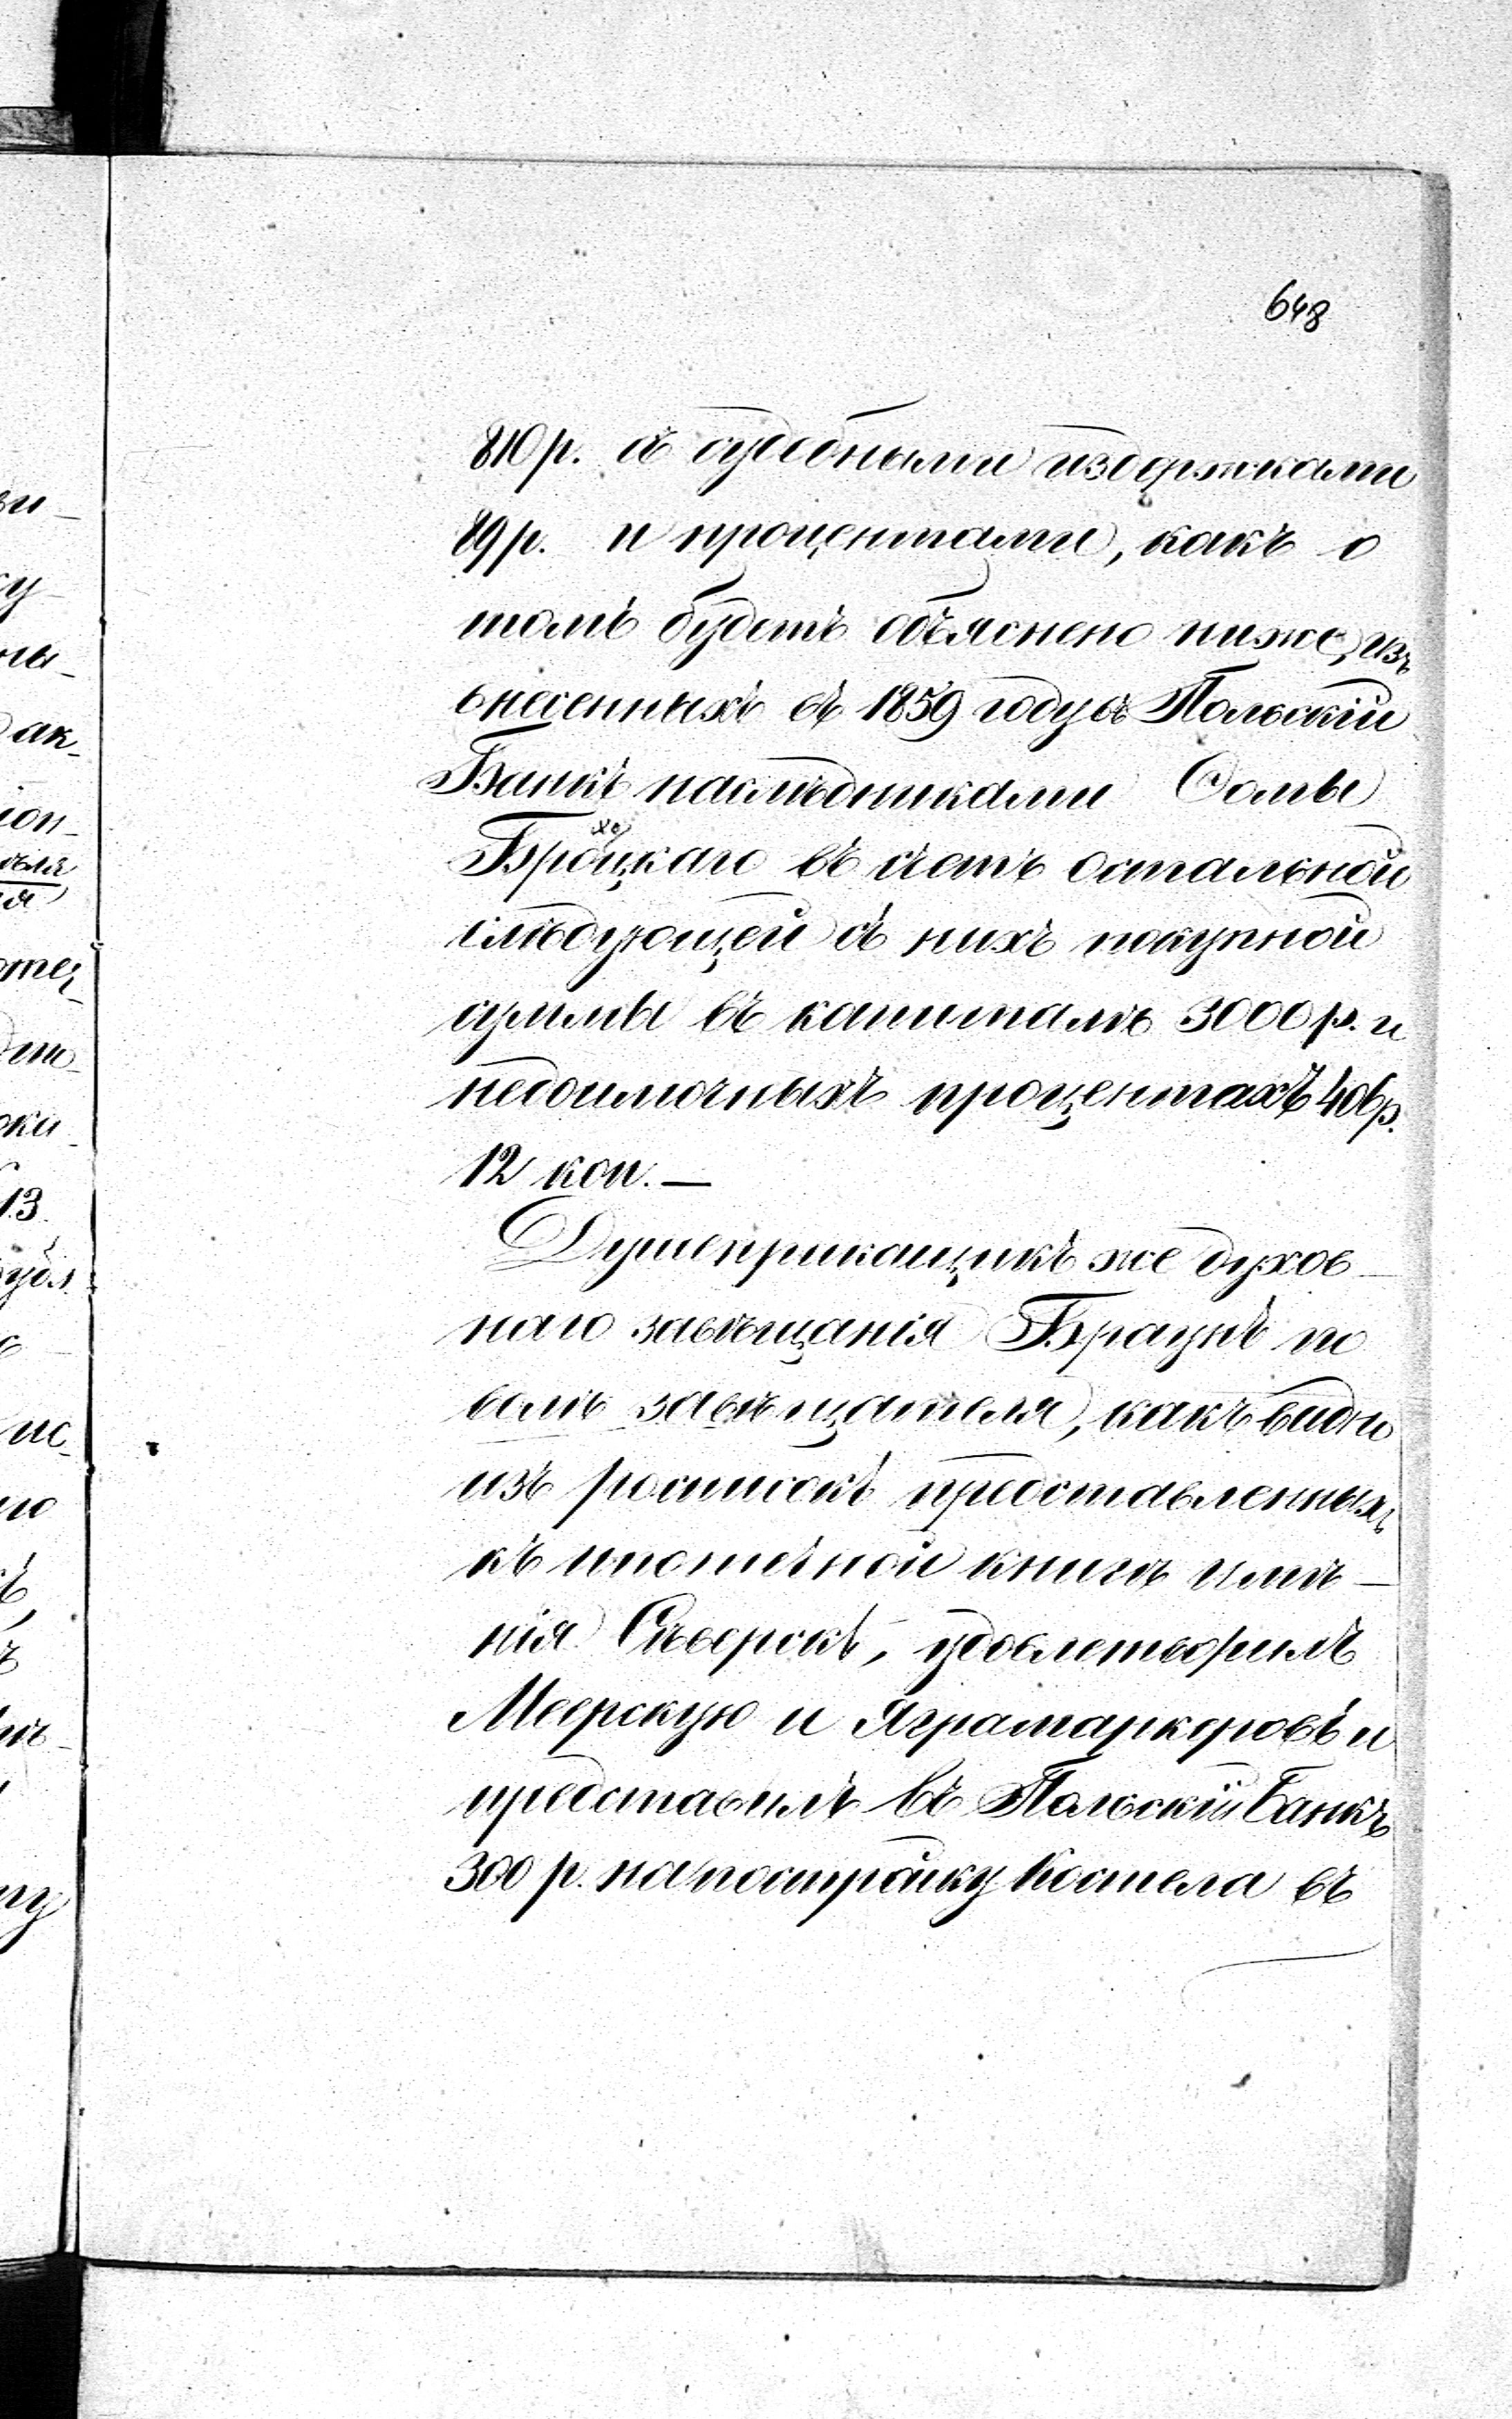 648
810 р. съ судебными издержками
89 р. и процентами, какъ о
томъ будетъ объяснено ниже, изъ
внесенныхъ въ 1859 году въ Польскій
Банкъ наслѣдниками Фомы
Брохоцкаго въ счетъ остальной
слѣдующей съ нихъ покупной
суммы въ капиталѣ 3000 р. и
недоимочныхъ процентахъ 406 р.
12 коп. —
Душеприкащикъ же духов-
наго завѣщанія Браунъ по
волѣ завѣщателя, какъ видно
изъ росписокъ представленныхъ
къ ипотечной книгѣ имѣ-
нія Сѣверскъ, удовлетворилъ
Меерскую и Яграмаркеровъ и
представилъ въ Польскій Банкъ
300 р. на постройку Костела въ